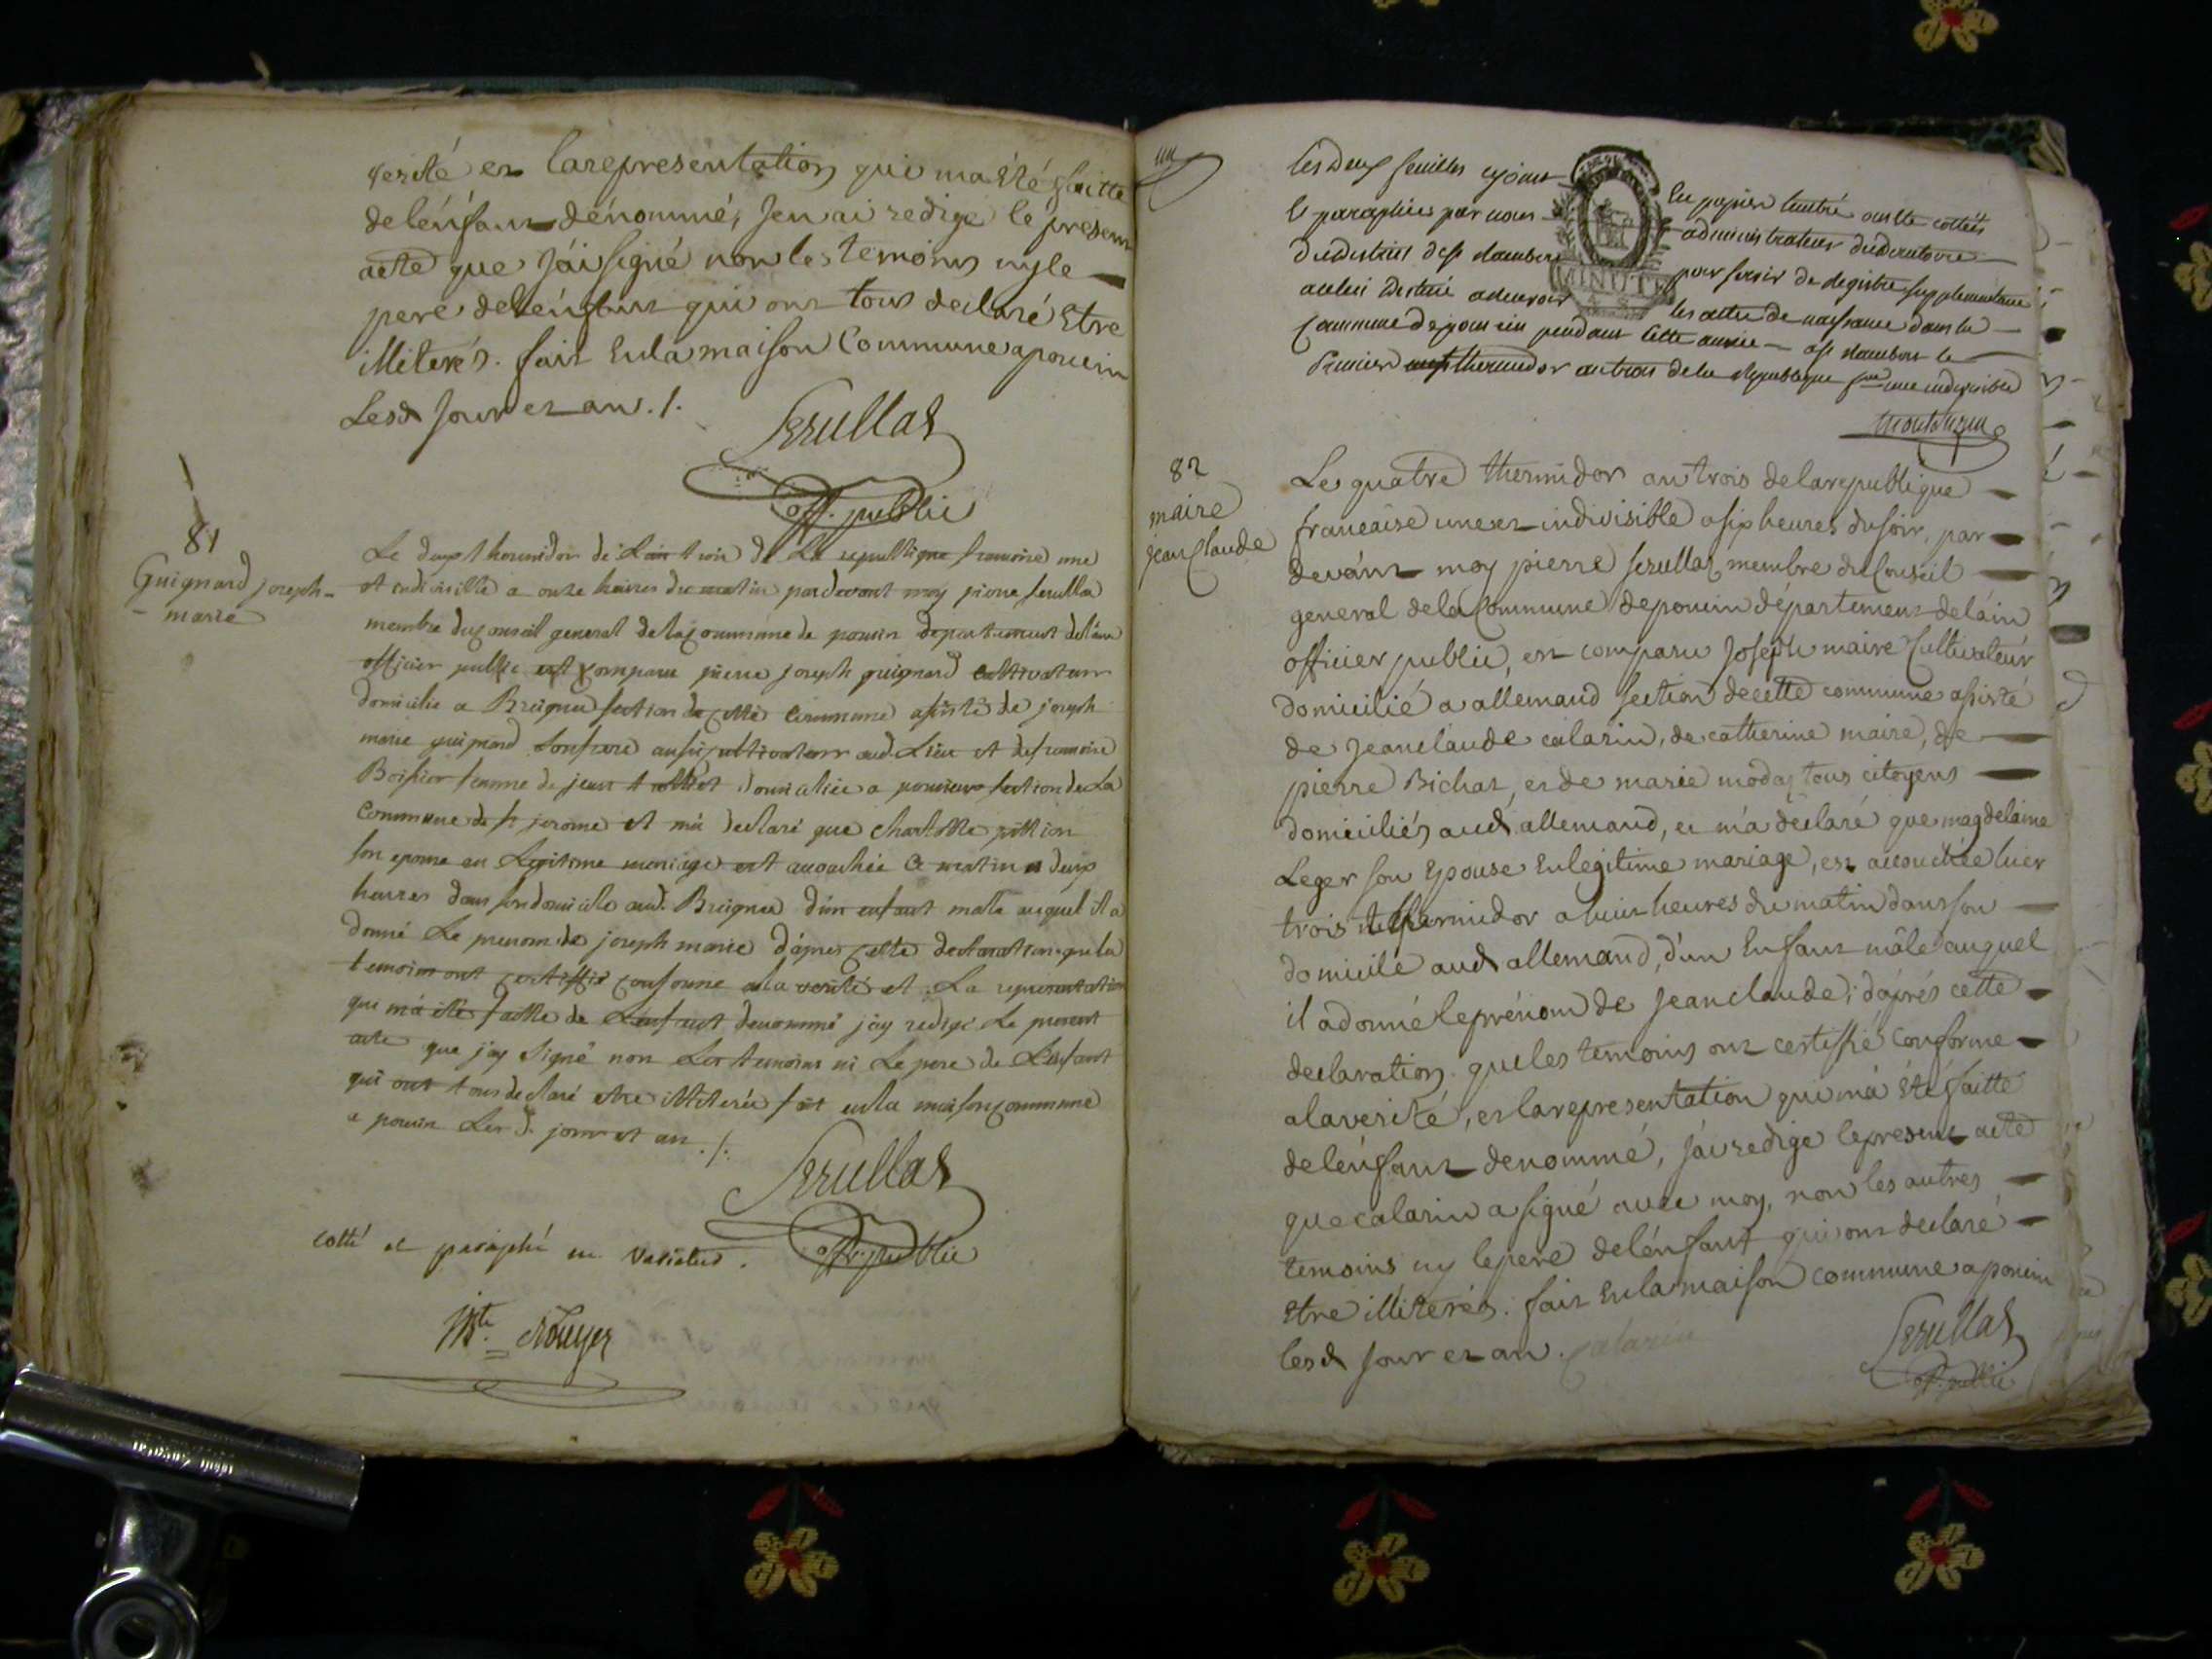 verité et la representation qui ma été faitte
de lénfant dénommé, Jen ai redigé le present
acte que J'ai signé non les temoins ny le
pere de lénfant qui ont tous declaré Etre
illiterés. fait En la maison Commune a poncin
Lesd Jour et an ./.
Serullaz
off. public
81
Guignard joseph-
- marie
Le deux thermidor de Lan trois de La republique francoise une
et indivisible a onze heures du matin par devant moy pierre serulla
membre du conseil general de la commune de poncin departement de láin
officier public est comparu pierre joseph guignard cultivateur
domicilié a Breignes section de cette commune assisté de joseph
marie guignard son frere aussi cultivateur aud. Lieu et de francoise
Boissier femme de jean domiciliée a section de La
Commune de st jerome et má declaré que charlotte pittion
son epouse en Legitime mariage est accouchée ce matin a deux
heures dans son domicile aud. Breignes d'un enfant male auquel il a
donné Le prenom de joseph marie d'apres cette declaration que les
temoins ont certiffié conforme a la verité et La representation
qui má été faitte de Lenfant denommé j'ay redigé Le present
acte que j'ay signé non Les temoins ni Le pere de Lenfant
qui ont tous declaré etre illiterés fait en la maison commune
a poncin Les d. jour et an ./.
Serullaz
off. public
cotté et paraphé ne varietur.
Les deux feuilles cy jointes En papier timbré ont été cottées
et paraphées par nous administrateur du directoire
du district de st rambert pour servir de registre supplementaire
a celui destiné a recevoir les actes de naissance dans la
Commune de poncin pendant cette année a st rambert le
Premier thermidor an trois de la Republique fse une indivisible
MINUTE
82
maire
jean Claude
Le quatre thermidor an trois de la republique
francaise une et indivisible a six heures du soir, par
devánt moy pierre serullaz membre du Conseil
general de la Commune de poncin département de láin
officier public, est comparu Joseph maire Cultivateur
domicilié a allemand section de cette commune assisté
de Jean claude calarin, de catherine maire, de
pierre Bichat, et de marie modaz tous citoyens
domiciliés aud. allemand, et m'a déclaré que magdelaine
Leger son Epouse En legitime mariage, est accouchée hier
trois thermidor a huit heures du matin dans son
domicile aud allemand, d'un Enfant mâle auquel
il a donné le prénom de Jean claude; d'aprés cette
declaration que les temoins ont certiffié conforme
a la verité, et la representation qui m'a été faitte
de lénfant denommé, j'ai redigé le present acte
que calarin a signé avec moy, non les autres
temoins ny le pere de lénfant qui ont declaré
Etre illiterés. fait En la maison commune a poncin
lesd Jour et an. Calarin
Serullaz
off. public